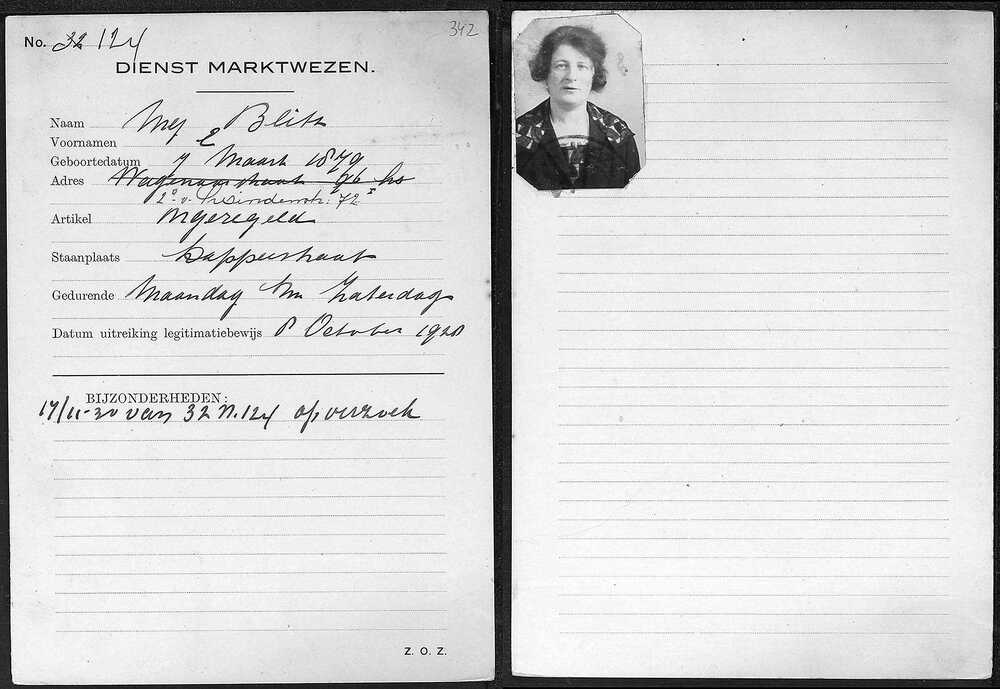 342
No. 32 124
DIENST MARKTWEZEN.
Naam Mej Blitz
Voornamen E
Geboortedatum 7 Maart 1879
Adres Wagenaarstraat 76 hs
2e v. Swindenstr. 72 I
Artikel ongeregeld
Staanplaats Dapperstraat
Gedurende Maandag t/m Zaterdag
Datum uitreiking legitimatiebewijs 8 October 1928
BIJZONDERHEDEN:
17/11-30 van 32 N. 124 op verzoek
Z. O. Z.